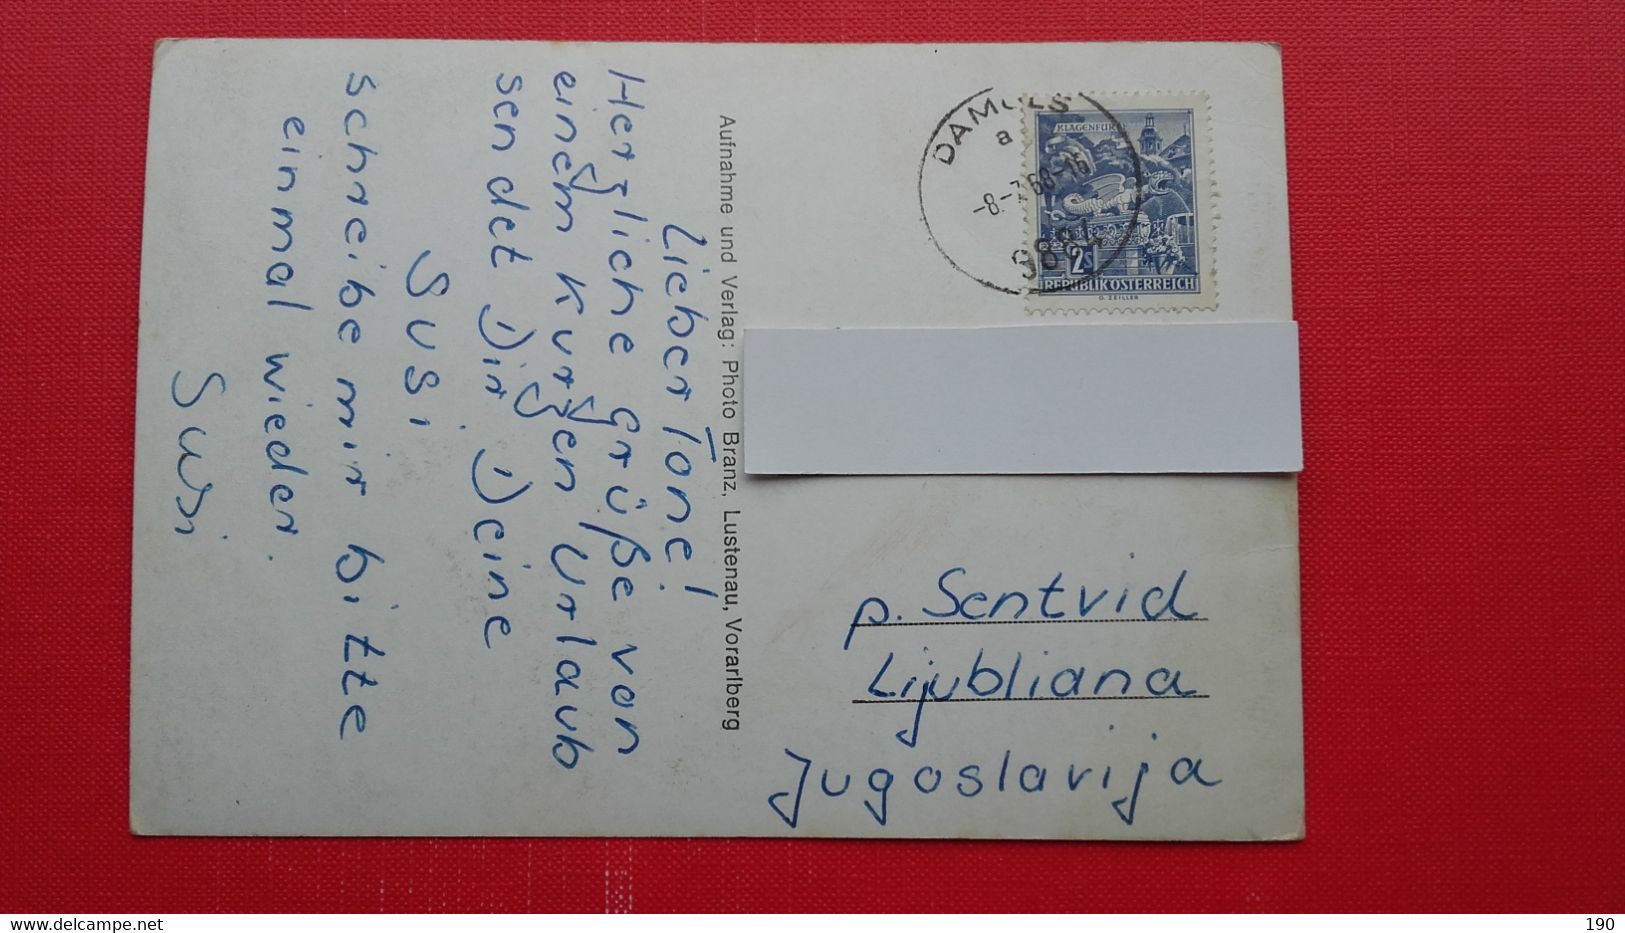 Lieber Tone!
Herzliche Grüße von
einem kurzen Urlaub
sendet Dir Deine
Susi.
Schreibe mir bitte
einmal wieder.
Susi
Aufnahme und Verlag: Photo Branz, Lustenau, Vorarlberg
DAMÜLS
a
-8.-7.68-16
6884
KLAGENFURT
2s
REPUBLIK ÖSTERREICH
O. ZEILLER
p. Sentvid
Ljubliana
Jugoslavija
190